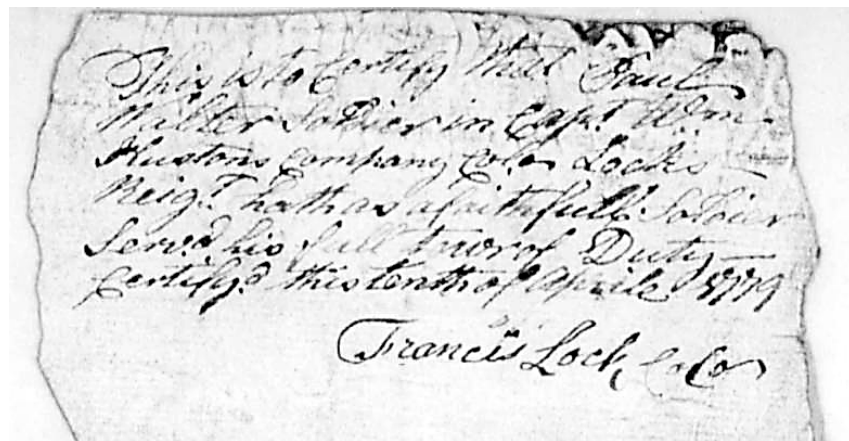 This is to Certify that Paul
Walter Soldier in Capt. Wm.
Hustons Company Colo. Locks
Reigt. hath as a faithfull Soldier
Serv.d his full tower of Duty
Certify.d this tenth of Aprile 1779
Francis Lock, Colo